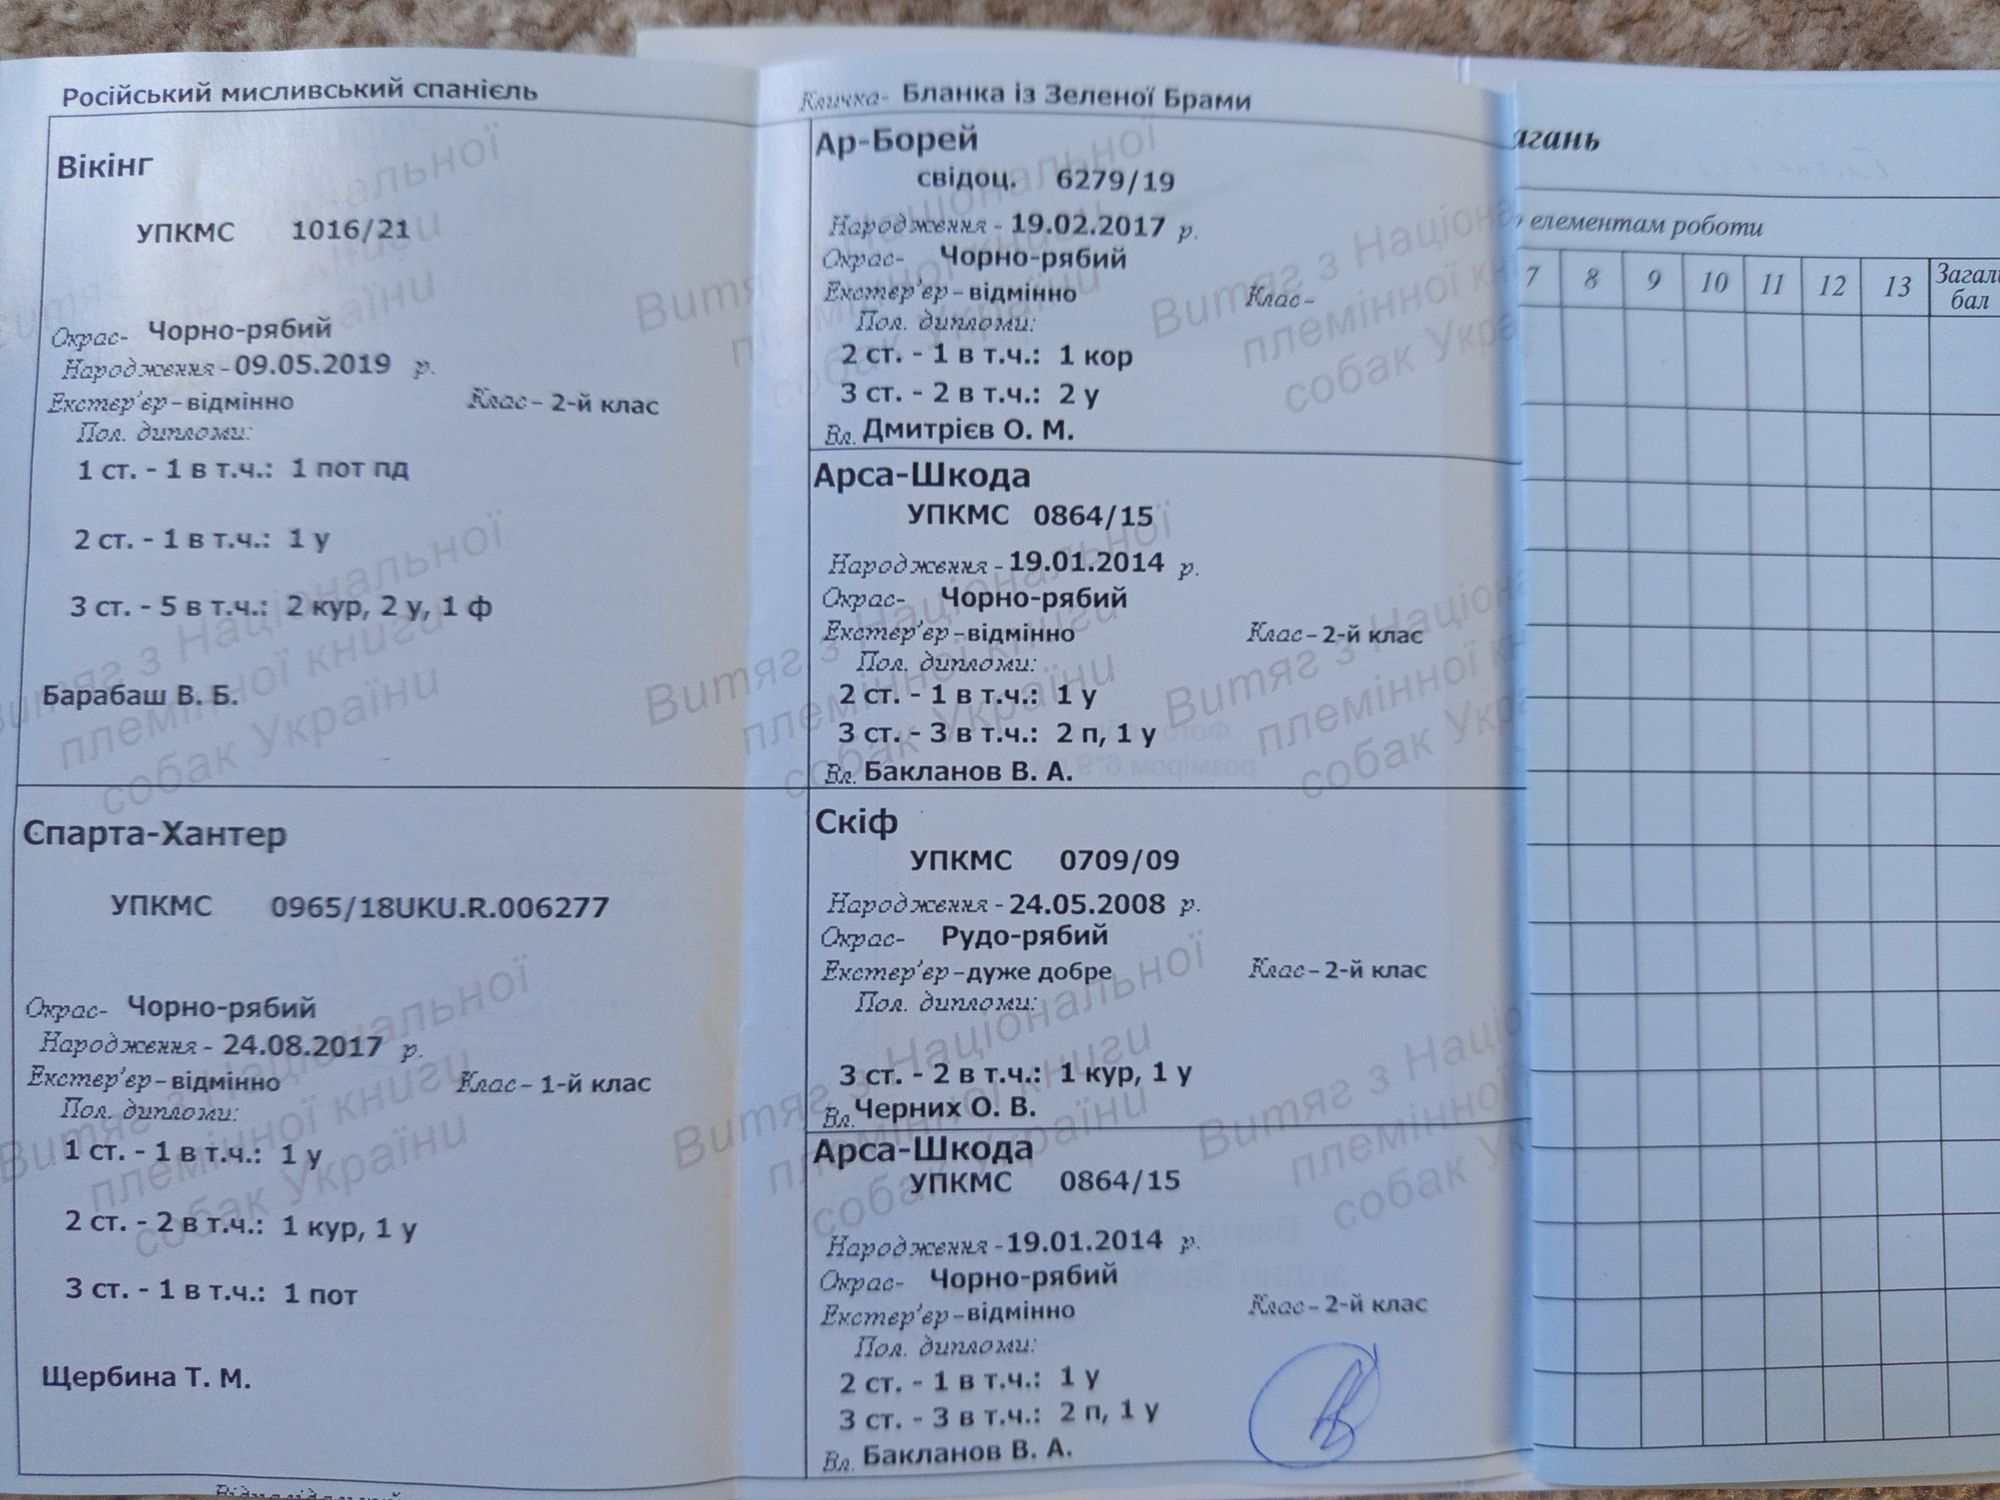 Російський мисливський спанієль
Вікінг
УПКМС 1016/21
Окрас- Чорно-рябий
Народження - 09.05.2019 р.
Екстер'єр - відмінно Клас - 2-й клас
Пол. дипломи:
1 ст. - 1 в т.ч.: 1 пот пд
2 ст. - 1 в т.ч.: 1 у
3 ст. - 5 в т.ч.: 2 кур, 2 у, 1 ф
Барабаш В. Б.
Спарта-Хантер
УПКМС 0965/18UKU.R.006277
Окрас- Чорно-рябий
Народження - 24.08.2017 р.
Екстер'єр - відмінно Клас - 1-й клас
Пол. дипломи:
1 ст. - 1 в т.ч.: 1 у
2 ст. - 2 в т.ч.: 1 кур, 1 у
3 ст. - 1 в т.ч.: 1 пот
Щербина Т. М.
Кличка- Бланка із Зеленої Брами
Ар-Борей
свідоц. 6279/19
Народження - 19.02.2017 р.
Окрас- Чорно-рябий
Екстер'єр - відмінно Клас -
Пол. дипломи:
2 ст. - 1 в т.ч.: 1 кор
3 ст. - 2 в т.ч.: 2 у
Вл. Дмитрієв О. М.
Арса-Шкода
УПКМС 0864/15
Народження - 19.01.2014 р.
Окрас- Чорно-рябий
Екстер'єр - відмінно Клас - 2-й клас
Пол. дипломи:
2 ст. - 1 в т.ч.: 1 у
3 ст. - 3 в т.ч.: 2 п, 1 у
Вл. Бакланов В. А.
Скіф
УПКМС 0709/09
Народження - 24.05.2008 р.
Окрас- Рудо-рябий
Екстер'єр - дуже добре Клас - 2-й клас
Пол. дипломи:
3 ст. - 2 в т.ч.: 1 кур, 1 у
Вл. Черних О. В.
Арса-Шкода
УПКМС 0864/15
Народження - 19.01.2014 р.
Окрас- Чорно-рябий
Екстер'єр - відмінно Клас - 2-й клас
Пол. дипломи:
2 ст. - 1 в т.ч.: 1 у
3 ст. - 3 в т.ч.: 2 п, 1 у
Вл. Бакланов В. А.
Витяг з Національної
племінної книги
собак України
агань
елементам роботи
7 8 9 10 11 12 13 Загаль
бал